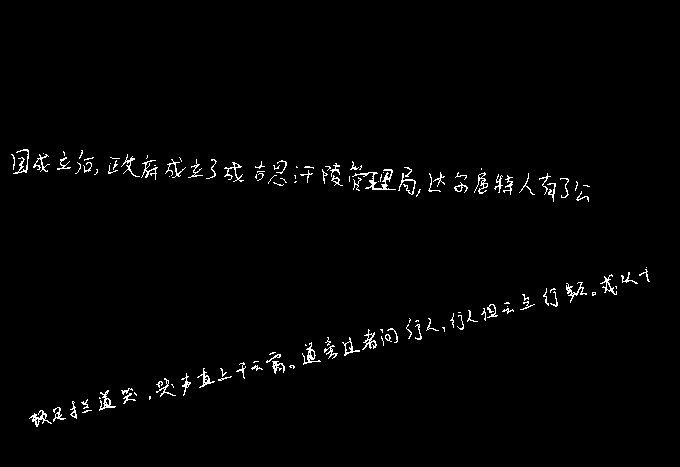 国成立后,政府成立了成吉思汗陵管理局,达尔扈特人有了公
顿足拦道哭,哭声直上干云霄。道旁过者问行人,行人但云点行频。或从十